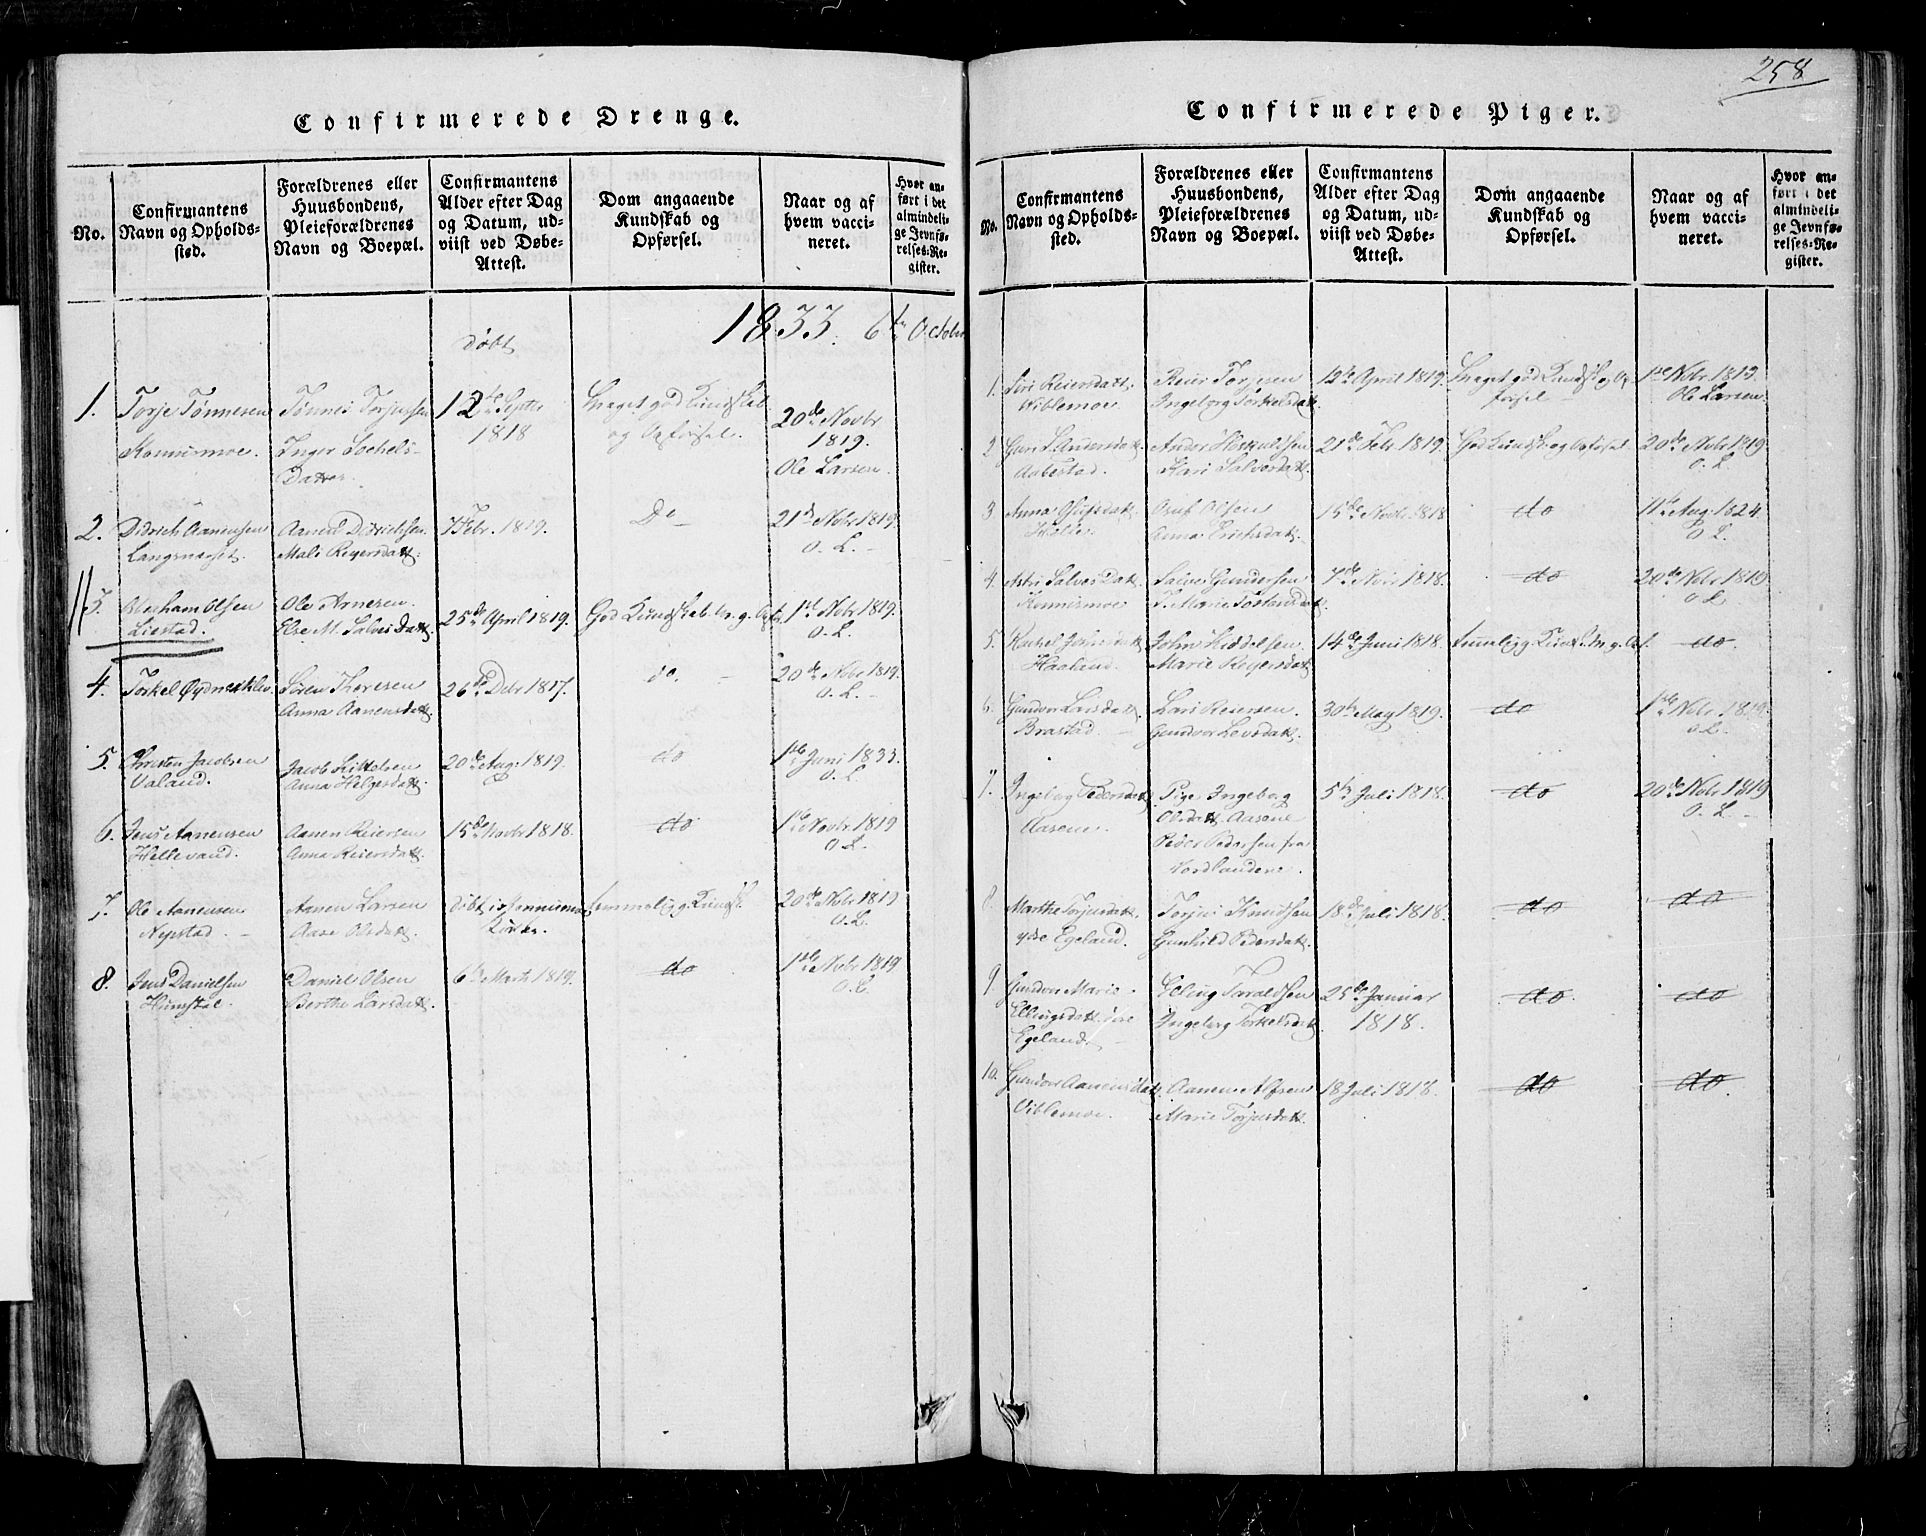 Confirmerede Drenge.
No.
Confirmantens
Navn og Opholds-
sted.
Forældrenes eller
Huusbondens,
Pleieforældrenes
Navn og Boepæl.
Confirmantens
Alder efter Dag
og Datum, ud-
viist ved Døbe-
Attest.
Dom angaaende
Kundskab og
Opførsel.
Naar og af
hvem vacci-
neret.
Hvor an-
ført i det
almindeli-
ge Jevnfø-
relses-Re-
gister.
1833. 6te October
Døbt
1.
Torje Tønnesen
Konnismoe.
Tønnes Torjussen
Inger
Datter
12te Septbr
1818
Meget god Kundskab
og Opførsel.
20de Novbr
1819.
Ole Larsen.
2.
Didrich Aanensen
Langemyget.
Aanen Didrichsen
Male Reiersdatt.
7 Febr. 1819.
Do
21de Novbr 1819.
O. L.
3.
Abraham Olsen
Liestad.
Ole Arnesen.
Else M. Salves Datt.
25de April 1819.
God Kundskab. M. g. Opf.
1ste Novbr 1819.
O. L.
4.
Torkel Øydneskleve
Søren Theresen
Anna Aanensdatt.
26de Debr 1817.
do.
20de Novbr 1819.
O. L.
5.
Christen Jacobsen
Valand.
Jacob Kittelsen
Anna Helgesdatt.
20de Aug. 1819.
do
1ste Juni 1833.
O. L.
6.
Jens Aanensen
Hellevand.
Aanen Reiersen
Anna Reiersdatt.
15de Novbr 1818.
do
1ste Novbr 1819
O. L.
7.
Ole Aanensen
Nepstad.
Aanen Larsen
Aase Olsdatt.
Døbt i Konnismoe
Kirke.
temmelig g. Kundsk.
20de Nobr 1819
O. L.
8.
Jens Danielsen
Hunstøl.
Daniel Olsen
Berthe Larsdatt.
6te Marts 1819.
do
1ste Novbr 1819
O. L.
258
Confirmerede Piger.
No.
Confirmantens
Navn og Opholds-
sted.
Forældrenes eller
Huusbondens,
Pleieforældrenes
Navn og Boepæl.
Confirmantens
Alder efter Dag
og Datum, ud-
viist ved Døbe-
Attest.
Dom angaaende
Kundskab og
Opførsel.
Naar og af
hvem vacci-
neret.
Hvor an-
ført i det
almindeli-
ge Jevnfø-
relses-Re-
gister.
1.
Siri Reiersdatt.
Viblemoe.
Reier Torjesen
Ingeborg Torkelsdatt.
12te April 1819.
Meget god Kundsk. og Op
førsel
1ste Nobr. 1819.
Ole Larsen.
2
Guri Andersdatt.
Aabestad.
Anders
Kari Salvesdatt.
21de Febr 1819.
God Kundsk. og Opførsel
20de Nobr 1819
O. L.
3
Anna Olufsdatt.
Helle.
Oluf Olsen
Anna Erichsdatt.
15de Novbr 1818
do
11te Aug. 1824.
O L.
4.
Astri Salves Datt.
Konnismoe
Salve Gundersen
7de Novbr 1818.
do
20de Nobr 1819
O. L
5.
Haaland.
John Kiddelsen
Marie Reiersdatt.
14de Juni 1818.
Temmelig g. Kunds. M. g. Opf.
do
6.
Gundvor Larsdatt.
Brastad.
Lars Reiersen.
Gundvor Levsdatt.
30te May 1819.
do
1ste Nobr. 1819.
O. L.
7.
Ingeborg Pedersdatt.
Aasene.
Pige Ingeborg
Olsdatt. Aasene
Peder Pedersen fra
Nordlandene.
5te Juli 1818.
do
20de Nobr 1819
O. L.
8.
Marthe Torjusdatt.
ydre Egeland.
Torjus Knudsen
Gunhild Pedersdatt.
18de Juli 1818.
do
do
9
Gundvor Marie
Ellingsdatt. ydre
Egeland.
Elling Taraldsen
Ingeborg Torkelsdatt.
25de Januar
1818.
do.
do
10.
Gundvor Aanensdatt.
Viblemoe.
Aanen
Marie Torjusdatt.
18 Juli 1818.
do
do